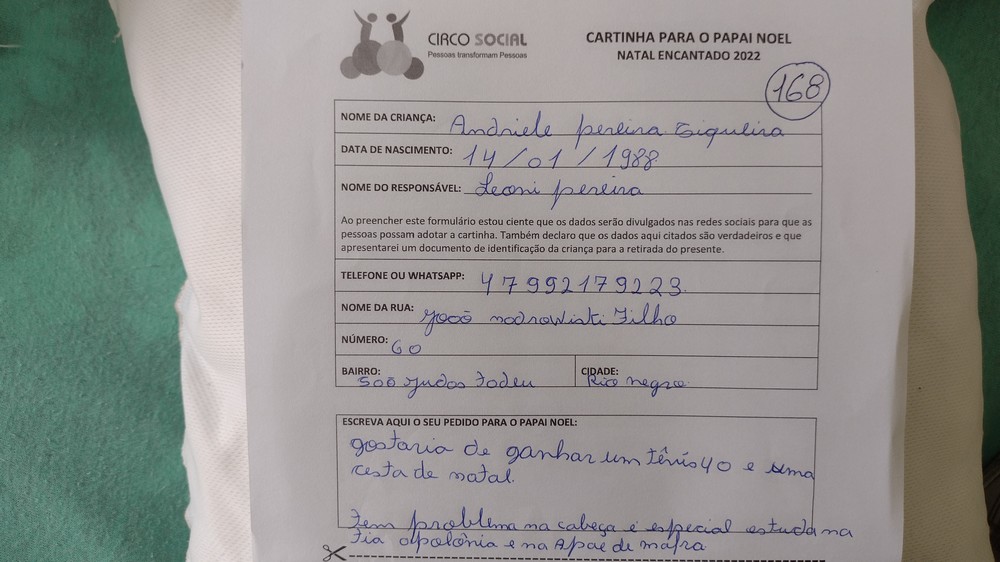 CIRCO SOCIAL
Pessoas transformam Pessoas
CARTINHA PARA O PAPAI NOEL
NATAL ENCANTADO 2022
168
NOME DA CRIANÇA: Andriele pereira Siqueira
DATA DE NASCIMENTO: 14/01/1988
NOME DO RESPONSÁVEL: Leoni pereira
Ao preencher este formulário estou ciente que os dados serão divulgados nas redes sociais para que as
pessoas possam adotar a cartinha. Também declaro que os dados aqui citados são verdadeiros e que
apresentarei um documento de identificação da criança para a retirada do presente.
TELEFONE OU WHATSAPP: 47992179223.
NOME DA RUA: João Filho
NÚMERO: 60
BAIRRO: São Judas Tadeu CIDADE: Rio negro
ESCREVA AQUI O SEU PEDIDO PARA O PAPAI NOEL:
gostaria de ganhar um tênis 40 e uma
cesta de natal.
Tem problema na cabeça é especial estuda na
Tia apolônia e na Apae de mafra